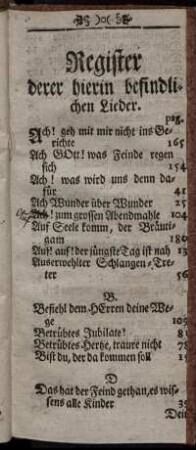 Register
derer hierin befindli-
chen Lieder.
pag.
Ach! geh mit mir nicht ins Ge-
richte 165
Ach GOtt! was Feinde regen
sich 154
Ach! was wird uns denn da-
für 41
Ach Wunder über Wunder 15
Auch! zum grossen Abendmahle 104
Auf Seele komm, der Bräuti-
gam 180
Auf! auf! der jüngste Tag ist nah 13
Auserwehlter Schlangen-Tre-
ter 56
B.
Befiehl dem HErren deine We-
ge 105
Betrübtes Jubilate! 81
Betrübtes Hertze, traure nicht 78
Bist du, der da kommen soll 15
D
Das hat der Feind gethan, es wis-
sens alle Kinder 35